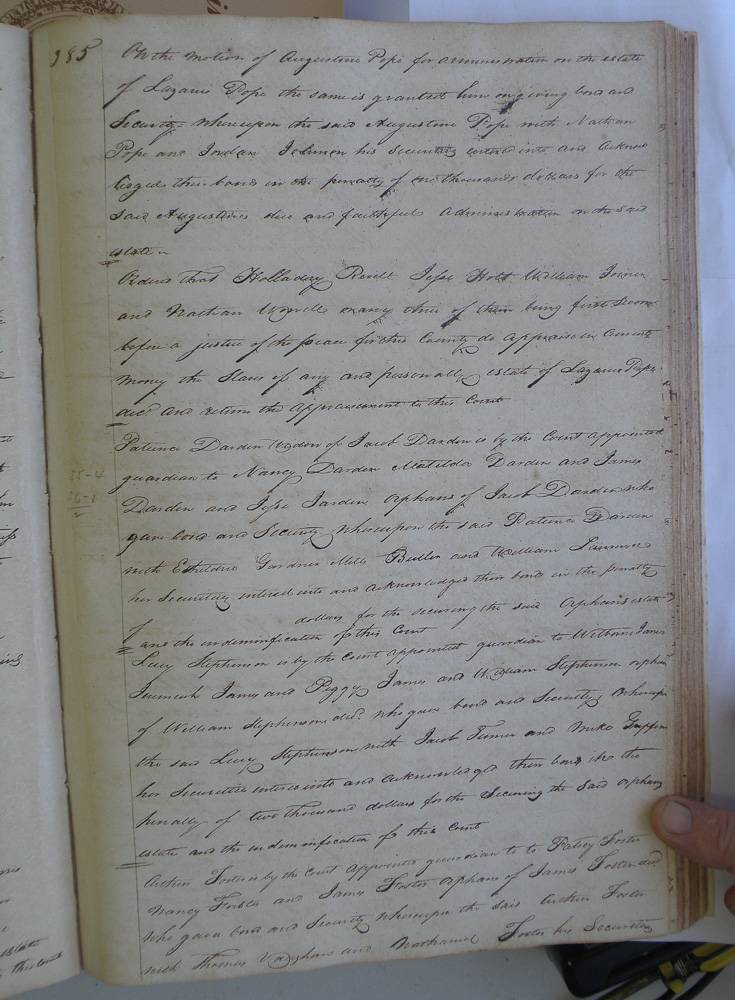 385
On the motion of Augustine Pope for administration on the estate
of Lazarus Pope the same is granted him on giving bond and
Security whereupon the said Augustine Pope with Nathan
Pope and Jordan Johnson his security entered into and acknow
ledged their bond in the penalty of one thousand dollars for the
said Augustine's due and faithful administration on the said
estate
Ordered that Holladay Revell Jesse Holt William Joiner
and Nathan Worrell or any three of them being first sworn
before a justice of the peace for this County do appraise in Current
money the Slaves if any and personally estate of Lazarus Pope
decd and return the appraisement to this Court
Patience Darden Widow of Jacob Darden is by the Court appointed
guardian to Nancy Darden Matilda Darden and James
Darden and Jesse Darden orphans of Jacob Darden who
gave bond and Security whereupon the said Patience Darden
with Etheldred Gardner Mills Butler and William Lawrence
her Security entered into and acknowledged their bond in the penalty
of dollars for the securing the said Orphans estate
and the indemnification of this Court
Lucy Stephenson is by the Court appointed guardian to William James
Jeremiah James and Peggy James and William Stephenson orphan
of William Stephenson decd who gave bond and Security whereupon
the said Lucy Stephenson with Jacob Turner and Griffin
her Securities entered into and acknowledged their bond in the
penalty of two thousand dollars for the Securing the said orphans
estates and the indemnification of this Court
Foster is by the Court appointed guardian to to Patsey Foster
Nancy Foster and James Foster orphans of James Foster decd
who gave bond and Security whereupon the said Foster
with Thomas Vaughan and Nathaniel Foster his Security